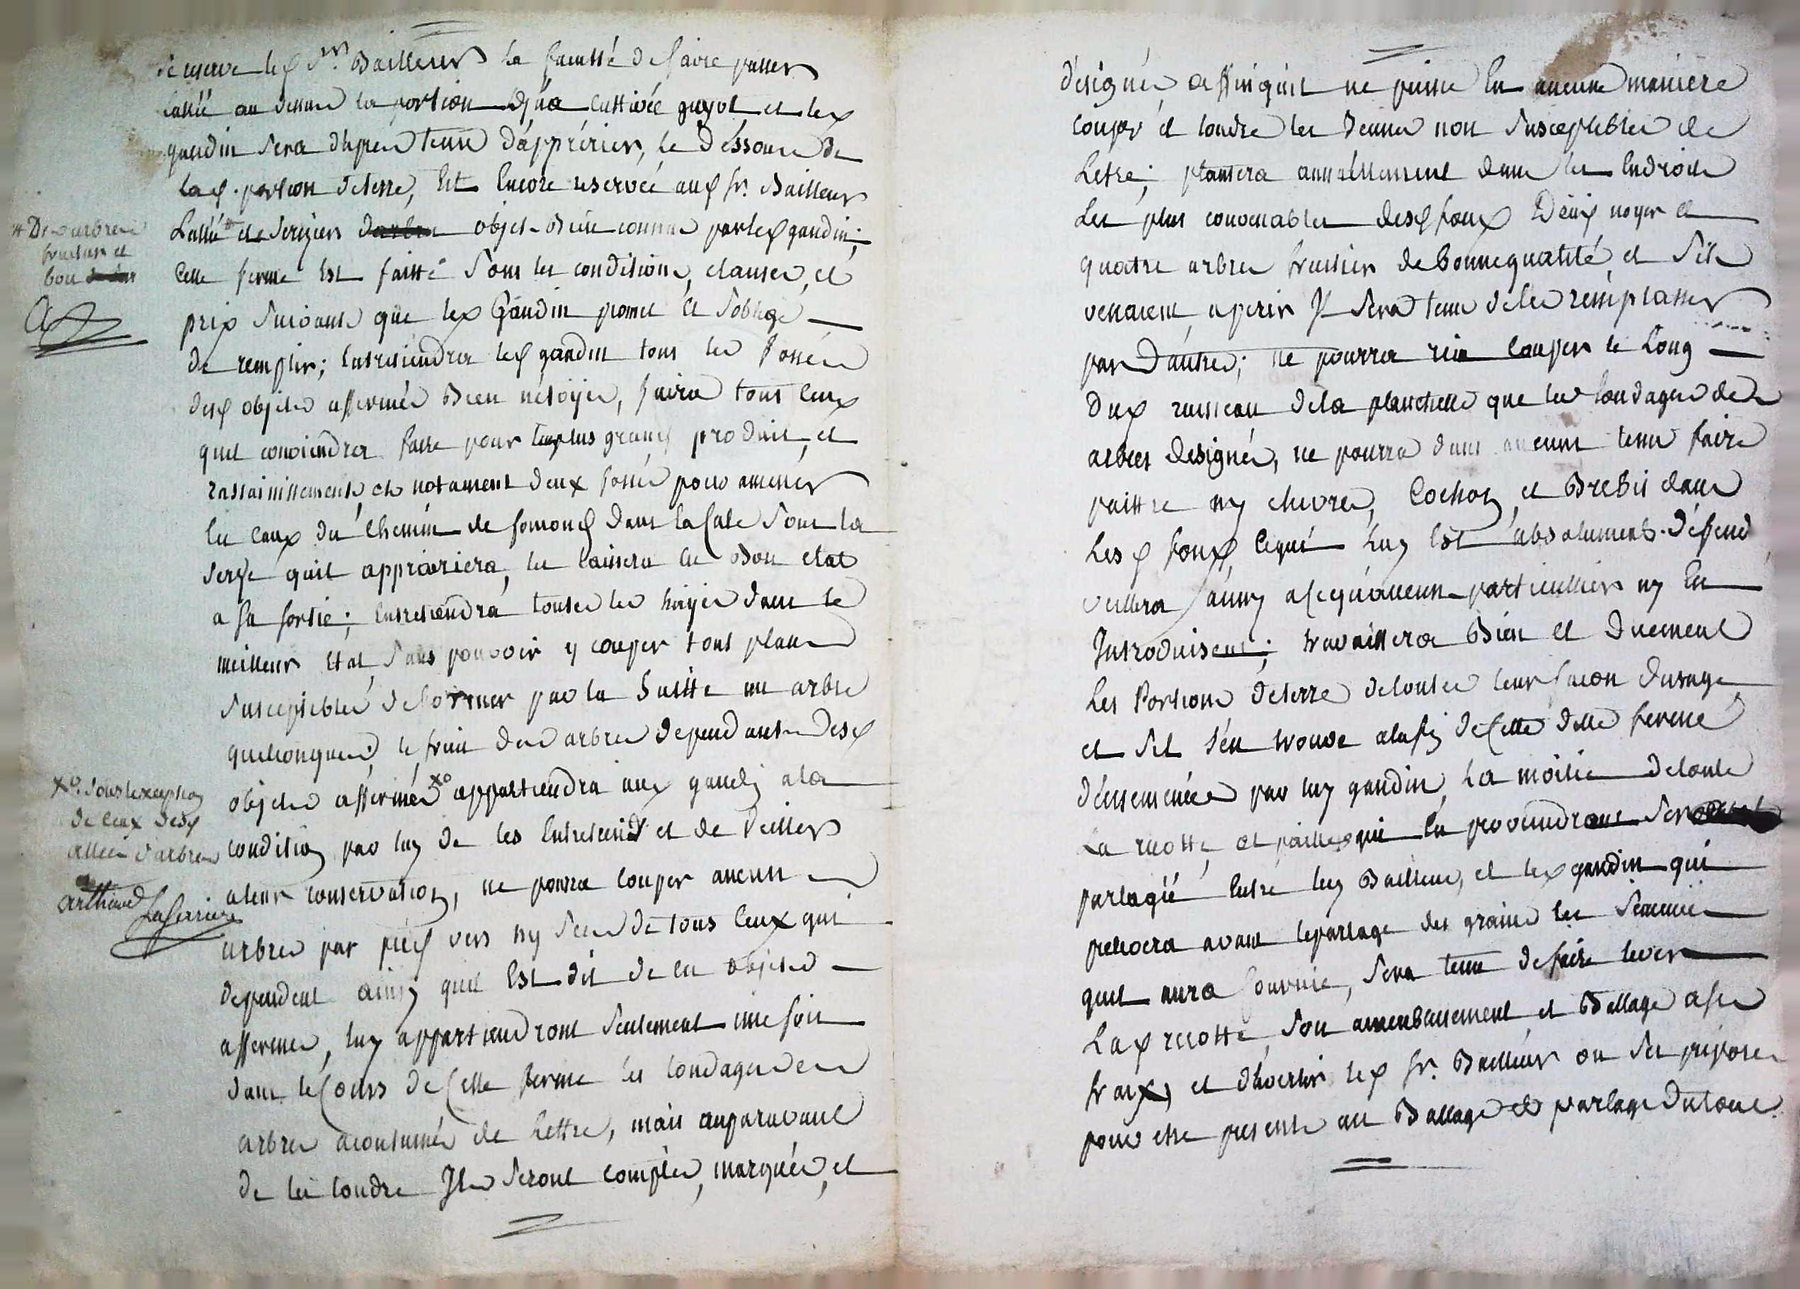 reserve led Sr. Bailleur la faculté de faire passer
au dessus la portion déja cultivée guyot et led
gaudin sera dhpren tenu d'apprérier, le déssous de
lad. portion de terre, Est Encore reservée aud sr. Bailleur
L'allée de serizier objet Bien connu par led gaudin;
# D'arbres
fruitier et
bou
Cette ferme Est faitte sous les conditions, clauses, et
prix suivants que led Gaudin promet et s'oblige
de remplir; Entretiendra led gaudin tous les fossés
desd objets affermés Bien nétoyés, faira tous ceux
quil conviendra faire pour leur plus grand produit, et
rassainissements et notament deux fossés pour amener
les Eaux du Chemin de dans la sous la
terre quil appriariera, les laissera en Bon etat
a sa sortie; Entretiendra toutes les hayes dans le
meilleur Etat, sans pouvoir y couper tous plans
susceptibles de former par la suitte un arbre
quelconques; le fruit des arbres dependants desd
objets affermés xo appartiendra aud gaudin a la
xo. sous l'exception
de ceux desd
allées d'arbres
arthaud Laferriere
condition par luy de les Entretenir et de veiller
a leur conservation, ne pourra couper aucun
arbres par pied vers ny secs de tous ceux qui
dependent ainsy quil Est dit de ces objets
affermés, luy appartiendront seulement une fois
dans le Cours de Cette ferme les tondages des
arbres acoutumés de Lettre, mais auparavant
de les tondre Ils seront comptés, marqués, et
désignés affinquil ne puisse En aucune maniere
couper et tondre les Jeunes non susceptibles de
Letre; plantera annuellement dans les Endroits
Les plus convenables desd fonds Deux noyer et
quatre arbres fruitiers de bonne qualité, et s'ils
venaient a perir Il sera tenu de les remplasser
par Dautres; ne pourra rien couper le Long
dud ruisseau de la planchette que les tondages des
arbres designés, ne pourra dans aucuns tems faire
paittre ny chevres, Cochon, et Brebis dans
Lesd fonds, cequi Luy Est absolument défendu
veillera aussy aceque aucun particulliers ny En
Introduisent; travaillera Bien et duement
Les Portions de terre de toutes leur facon dusage
et s'il s'en trouve a la fin de Cette ditte ferme
d'ensemencés par luy gaudin, La moitié de toute
La recotte et pailles qui En proviendront
partagée Entre luy Bailleur, et led gaudin qui
prelevera avant le partage des grains les semences
quil aura fournie, sera tenu de faire lever
Lad recotte, son et Battage a ses
fraix, et d'avertir led Sr. Bailleur ou ses préposés
pour etre presents au Battage et partage du tout.